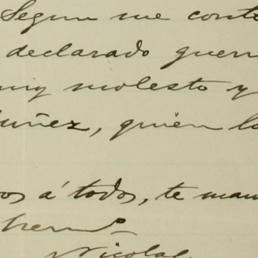 Segun me conte
declarado guer
muy molesto y
uñez, quién lo
os á todos, te man
herm.º
Nicolas